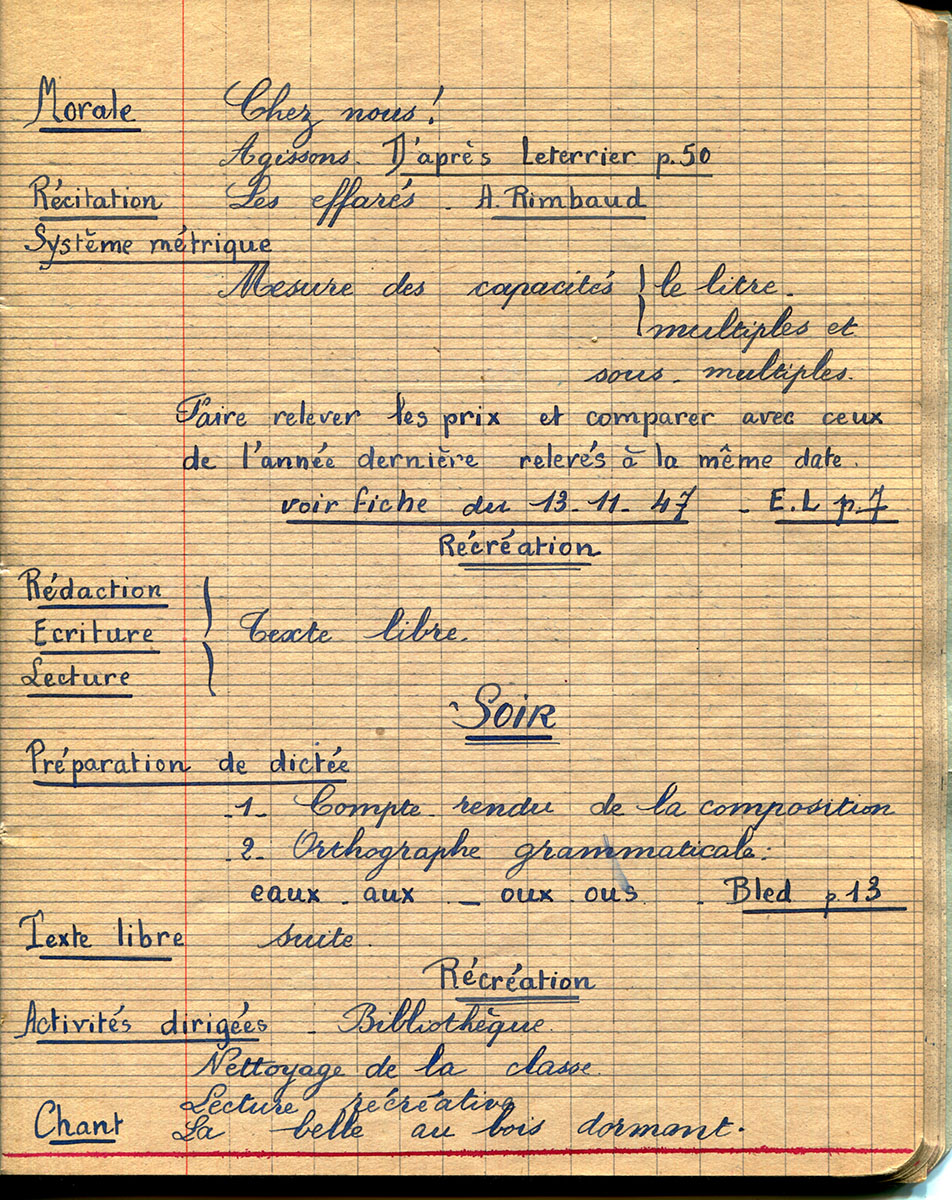 Morale Chez nous!
Agissons. D'après Leterrier p.50
Récitation Les effarés - A. Rimbaud
Système métrique
Mesure des capacités } le litre.
multiples et
sous-multiples.
Faire relever les prix et comparer avec ceux
de l'année dernière relevés à la même date.
voir fiche du 13-11-47 - E.L p.7
Récréation
Rédaction
Ecriture } Texte libre.
Lecture
SOIR
Préparation de dictée
-1- Compte-rendu de la composition
-2- Orthographe grammaticale:
eaux - aux _ oux - ous - Bled p.13
Texte libre suite.
Récréation
Activités dirigées - Bibliothèque.
Nettoyage de la classe.
Lecture récréative
Chant La belle au bois dormant.